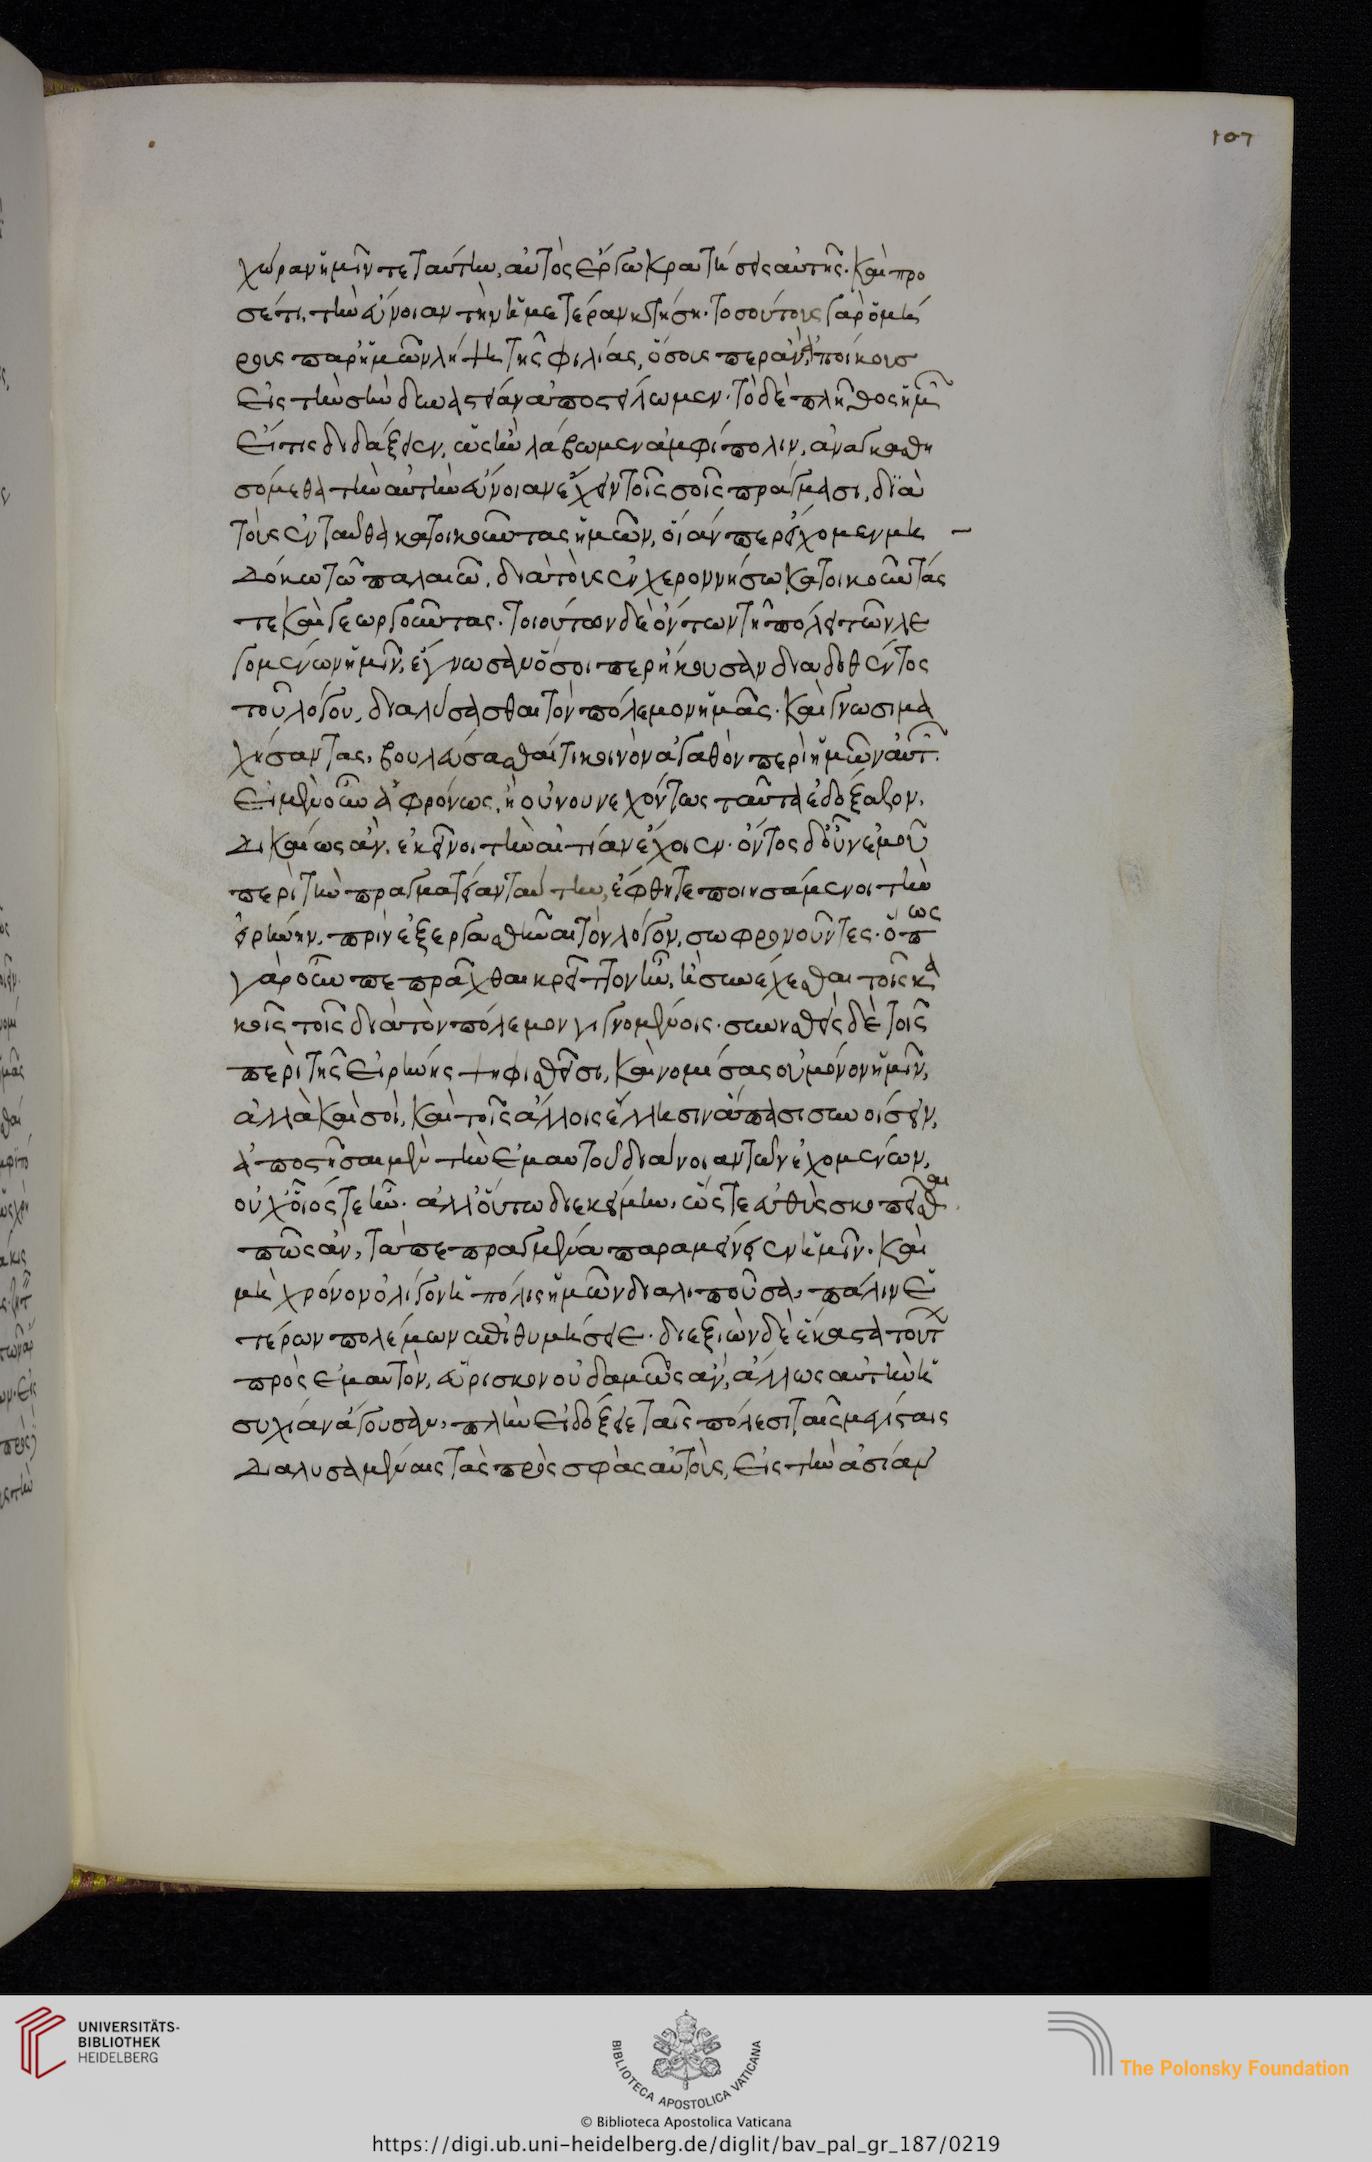 107
χώραν ἡμῖν τε ταύτην, αὐτὸς ἔργω κρατήσεις αὐτῆς. καὶ προ
σέτι, τὴν εὔνοιαν τὴν ἡμετέραν κτήση. τοσούτους γὰρ ὁμή
ρους παρ' ἡμῶν λήψη τῆς φιλίας, ὅσους περ ἂν ἀποίκους
εἰς τὴν σὴν δυναστείαν ἀποστείλωμεν. τὸ δὲ πλῆθος ἡμῶν
εἴ τις διδάξειεν, ὡς ἢν λάβωμεν ἀμφίπολιν, ἀναγκασθη
σόμεθα τὴν αὐτὴν εὔνοιαν ἔχειν τοῖς σοῖς πράγμασι, διὰ
τοὺς ἐνταῦθα κατοικοῦντας ἡμῶν, οἵαν περ είχομεν μη
δόκω τῶ παλαιῶ, διὰ τοὺς ἐν χερονήσω κατοικοῦντάς
τε καὶ γεωργοῦντας. τοιούτων δὲ ὄντων τῆ πόλει τῶν λε
γομένων ἡμῖν, ἔγνωσαν ὅσοι περ ἤκουσαν διαδοθέντος
τοῦ λόγου, διαλύσασθαι τὸν πόλεμον ἡμᾶς. καὶ γνωσιμα
χήσαντας, βουλεύσασθαί τι κοινὸν ἀγαθὸν περὶ ἡμῶν αὐτῶν.
εἰ μὲν οὖν ἀφρόνως, ἢ οὐ νουνεχόντως ταῦτα ἐδόξαζον,
δικαίως ἂν, ἐκεῖνοι τὴν αἰτίαν ἔχοιεν. ὄντος δ' οὖν ἐμοῦ
περὶ τὴν πραγματείαν ταύτην, ἔφθητε ποιησάμενοι τὴν
εἰρήνην, πρὶν ἐξεργασθῆναι τὸν λόγον, σωφρονοῦντες. ὅπως
γὰρ οὖν πεπρᾶχθαι κρεῖττον ἦν, ἢ συνέχεσθαι τοῖς κα
κοῖς τοῖς διὰ τὸν πόλεμον γιγνομένοις. συνησθεὶς δὲ τοῖς
περὶ τῆς εἰρήνης ψηφισθεῖσι, καὶ νομίσας οὐ μόνον ἡμῖν,
ἀλλὰ καὶ σοὶ, καὶ τοῖς ἄλλοις ἕλλησιν ἅπασι συνοίσειν,
ἀποστῆσαι μὲν τὴν ἐμαυτοῦ διάνοιαν τῶν ἐχομένων,
οὐχ οἷός τε ἦν. ἀλλ' οὕτω διεκείμην, ὥστε εὐθὺς σκοπεῖσθαι
πῶς ἂν, τὰ πεπραγμένα παραμείνειεν ἡμῖν. καὶ
μὴ χρόνον ὀλίγον ἡ πόλις ἡμῶν διαλιποῦσα, πάλιν ἑ
τέρων πολέμων ἐπιθυμήσειε. διεξιὼν δὲ ἕκαστα τούτων
πρὸς ἐμαυτὸν, εὕρισκον οὐδαμῶς ἂν, ἄλλως αὐτὴν ἡ
συχίαν ἄγουσαν, πλὴν εἰ δόξειε ταῖς πόλεσι ταῖς μεγίσταις
διαλυσαμέναις τὰς πρὸς σφᾶς αὐτοὺς, εἰς τὴν ἀσίαν
UNIVERSITÄTS-
BIBLIOTHEK
HEIDELBERG
BIBLIOTECA APOSTOLICA VATICANA
The Polonsky Foundation
© Biblioteca Apostolica Vaticana
https://digi.ub.uni-heidelberg.de/diglit/bav_pal_gr_187/0219